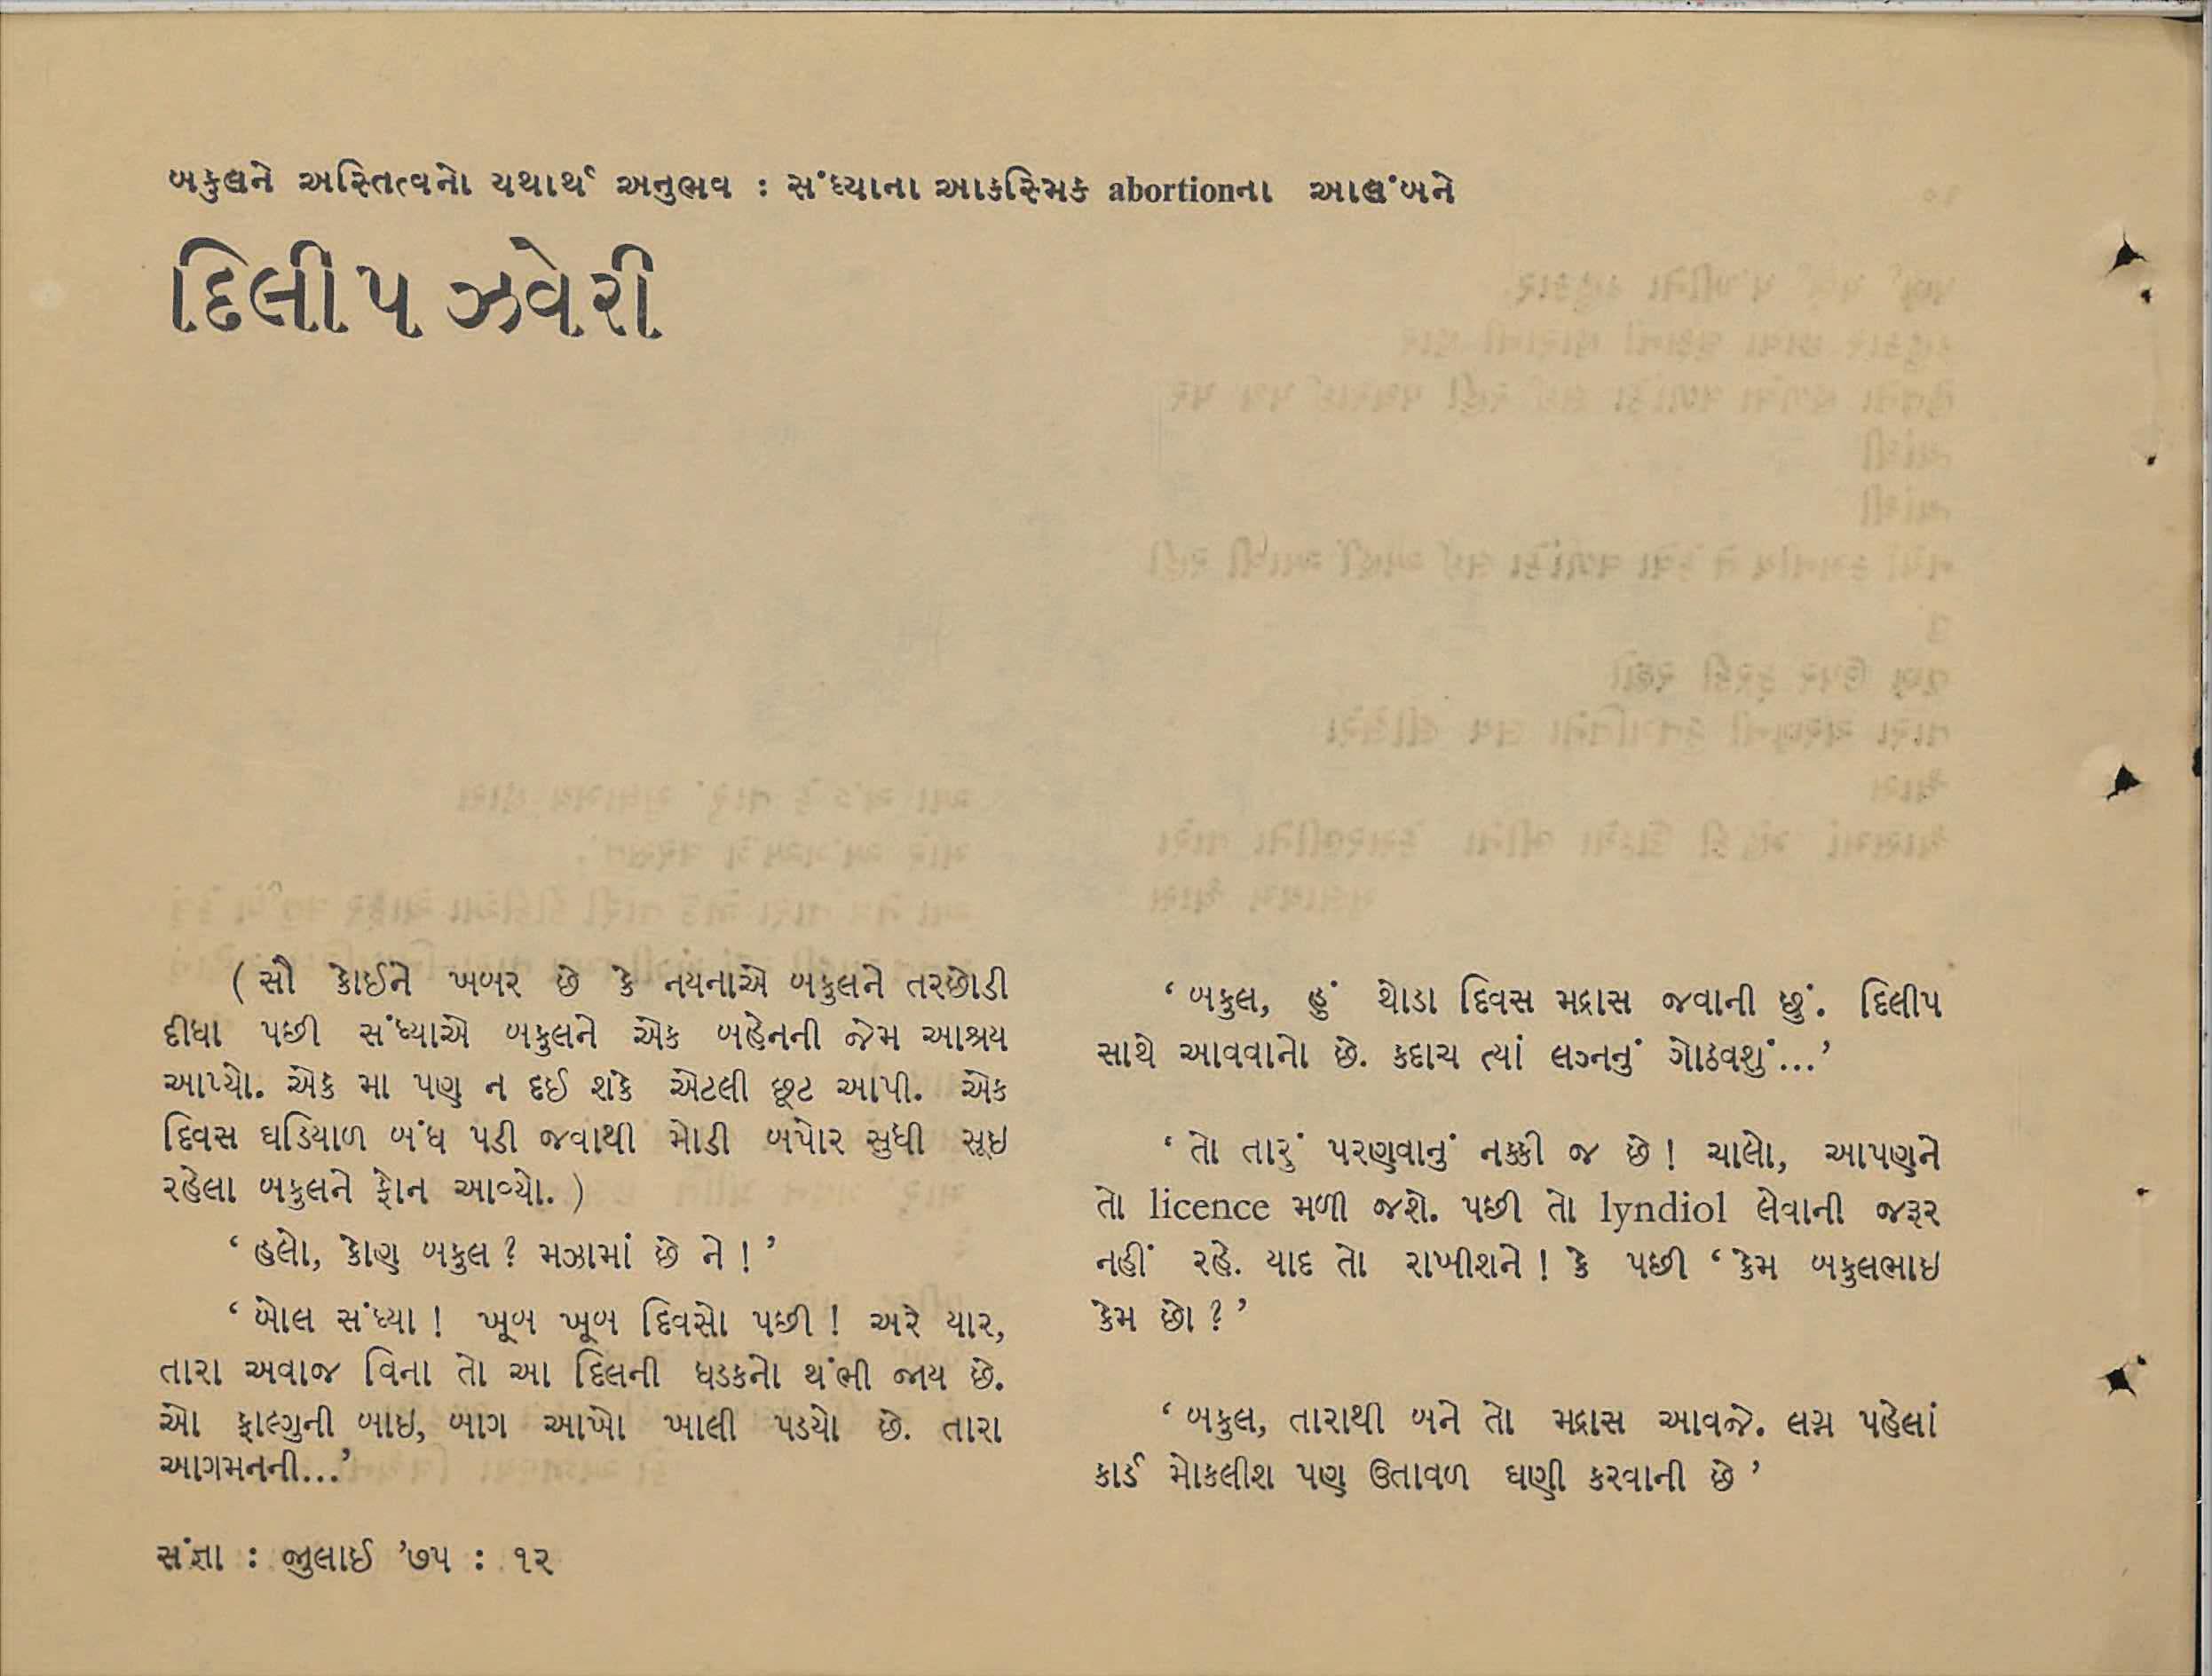 બકુલને અસ્તિત્વનો યથાર્થ અનુભવ : સંધ્યાના આકસ્મિક abortionના આલંબને
દિલીપ ઝવેરી
( સૌ કોઈને ખબર છે કે નયનાએ બકુલને તરછોડી
દીધા પછી સંધ્યાએ બકુલને એક બહેનની જેમ આશ્રય
આપ્યો. એક મા પણ ન દઈ શકે એટલી છૂટ આપી. એક
દિવસ ઘડિયાળ બંધ પડી જવાથી મોડી બપોર સુધી સૂઇ
રહેલા બકુલને ફોન આવ્યો. )
‘ હલો, કોણ બકુલ ? મઝામાં છે ને ! ’
‘ બોલ સંધ્યા ! ખૂબ ખૂબ દિવસો પછી ! અરે યાર,
તારા અવાજ વિના તો આ દિલની ધડકનો થંભી જાય છે.
ઓ ફાલ્ગુની બાઇ, બાગ આખો ખાલી પડયો છે. તારા
આગમનની...’
‘ બકુલ, હું થોડા દિવસ મદ્રાસ જવાની છું. દિલીપ
સાથે આવવાનો છે. કદાચ ત્યાં લગ્નનું ગોઠવશું...’
‘ તો તારું પરણવાનું નક્કી જ છે ! ચાલો, આપણને
તો licence મળી જશે. પછી તો lyndiol લેવાની જરૂર
નહીં રહે. યાદ તો રાખીશને ! કે પછી ‘ કેમ બકુલભાઇ
કેમ છો ? ’
‘ બકુલ, તારાથી બને તો મદ્રાસ આવજે. લગ્ન પહેલાં
કાર્ડ મોકલીશ પણ ઉતાવળ ઘણી કરવાની છે ’
સંજ્ઞા : જુલાઈ ’૭૫ : ૧૨